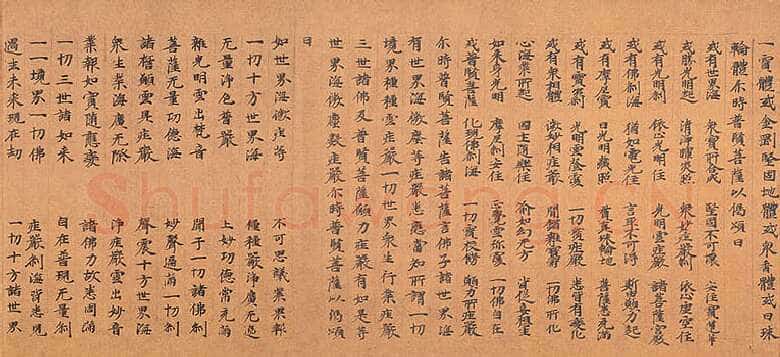 一寶體或金剛堅固地體或衆香體或日珠
輪體尒時普賢菩薩以偈頌曰
或有世界海 衆寶所合成 堅固不可壞 安住寶蓮華
或勝光明起 清淨 衆妙莊嚴刹 依止虛空住
或有光明刹 依止光明住 光明雲莊嚴 諸菩薩宮殿
或有佛刹海 猶如電光住 言辞不可得 斯由願力起
或有摩尼寶 日光明藏照 普 珠輪地 菩薩悉充滿
或有寶炎刹 光明雲蔭覆 一切寶莊嚴 悉皆有變化
或有衆相體 微妙相莊嚴 一切佛所化
心海業所起 國土隨樂住 猶如幻无方 皆從妄想生
如來身光明 摩尼刹安住 正覺雲弥覆 一切佛自在
或普賢菩薩 化現佛刹海 一切寶校餝 願力所莊嚴
尒時普賢菩薩告諸菩薩言佛子諸世界海
有世界海微塵等莊嚴悉應當知所謂一切
境界種種雲莊嚴一切世界衆生行業莊嚴
三世諸佛及普賢菩薩願力莊嚴有如是等
世界海微塵數莊嚴尒時普賢菩薩以偈頌
曰
如世界海微塵等 不可思議業果報
一切十方世界海 種種嚴淨廣无邊
无量淨色普嚴 上妙功德常充滿
雜光明雲出梵音 聞于一切諸佛刹
菩薩无量功德海 妙聲遍滿一切刹
諸楷願雲具莊嚴 聲震十方世界海
衆生業海廣无際 淨莊嚴雲出妙音
業報如實隨應變 諸佛力故悉周滿
一切三世諸如來 自在普現无量刹
一一境界一切佛 莊嚴刹海皆悉見
過去未來現在劫 一切十方諸世界